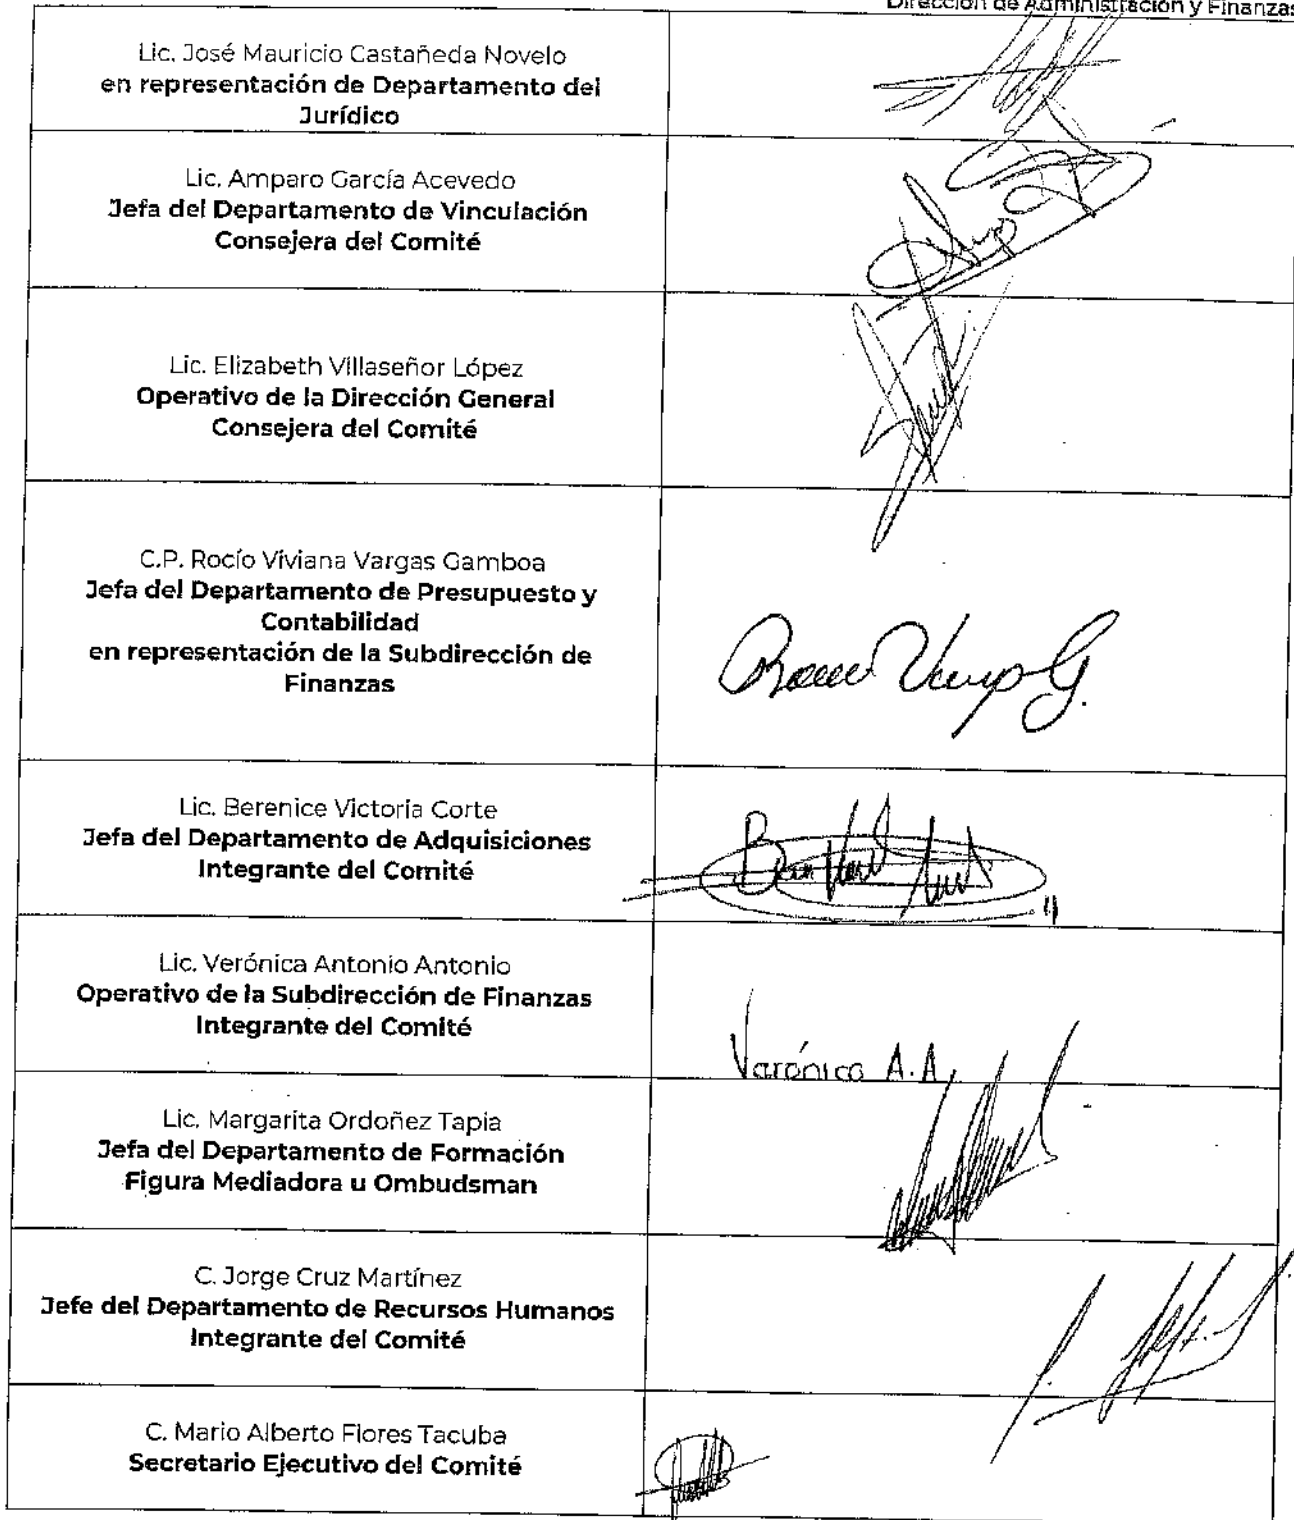 Dirección de Administración y Finanzas
Lic. José Mauricio Castañeda Novelo
en representación de Departamento del
Jurídico
Lic. Amparo García Acevedo
Jefa del Departamento de Vinculación
Consejera del Comité
Lic. Elizabeth Villaseñor López
Operativo de la Dirección General
Consejera del Comité
C.P. Rocío Viviana Vargas Gamboa
Jefa del Departamento de Presupuesto y
Contabilidad
en representación de la Subdirección de
Finanzas
Lic. Berenice Victoria Corte
Jefa del Departamento de Adquisiciones
Integrante del Comité
Lic. Verónica Antonio Antonio
Operativo de la Subdirección de Finanzas
Integrante del Comité
Verónica A.A.
Lic. Margarita Ordoñez Tapia
Jefa del Departamento de Formación
Figura Mediadora u Ombudsman
C. Jorge Cruz Martínez
Jefe del Departamento de Recursos Humanos
Integrante del Comité
C. Mario Alberto Flores Tacuba
Secretario Ejecutivo del Comité